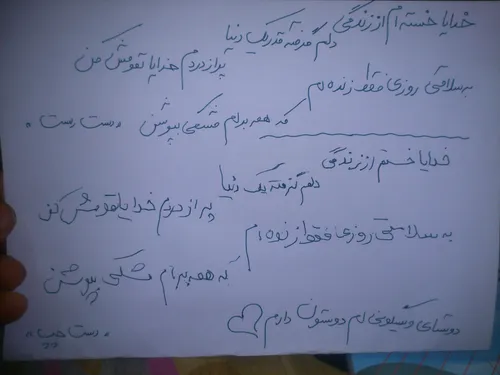 خدایا خسته ام از زندگی
دلم گرفته قدر یک دنیا
پر از دردم خدایا تمومش کن
به سلامتی روزی فقط زنده ام
که همه برام مشکی بپوشن "دست راست"
خدایا خستم از زندگی
دلم گرفته یک دنیا
پر از دردم خدایا تمومش کن
به سلامتی روزی فقط زنده ام
که همه برام مشکی بپوشن
دوستون دارم
"دست چپ"